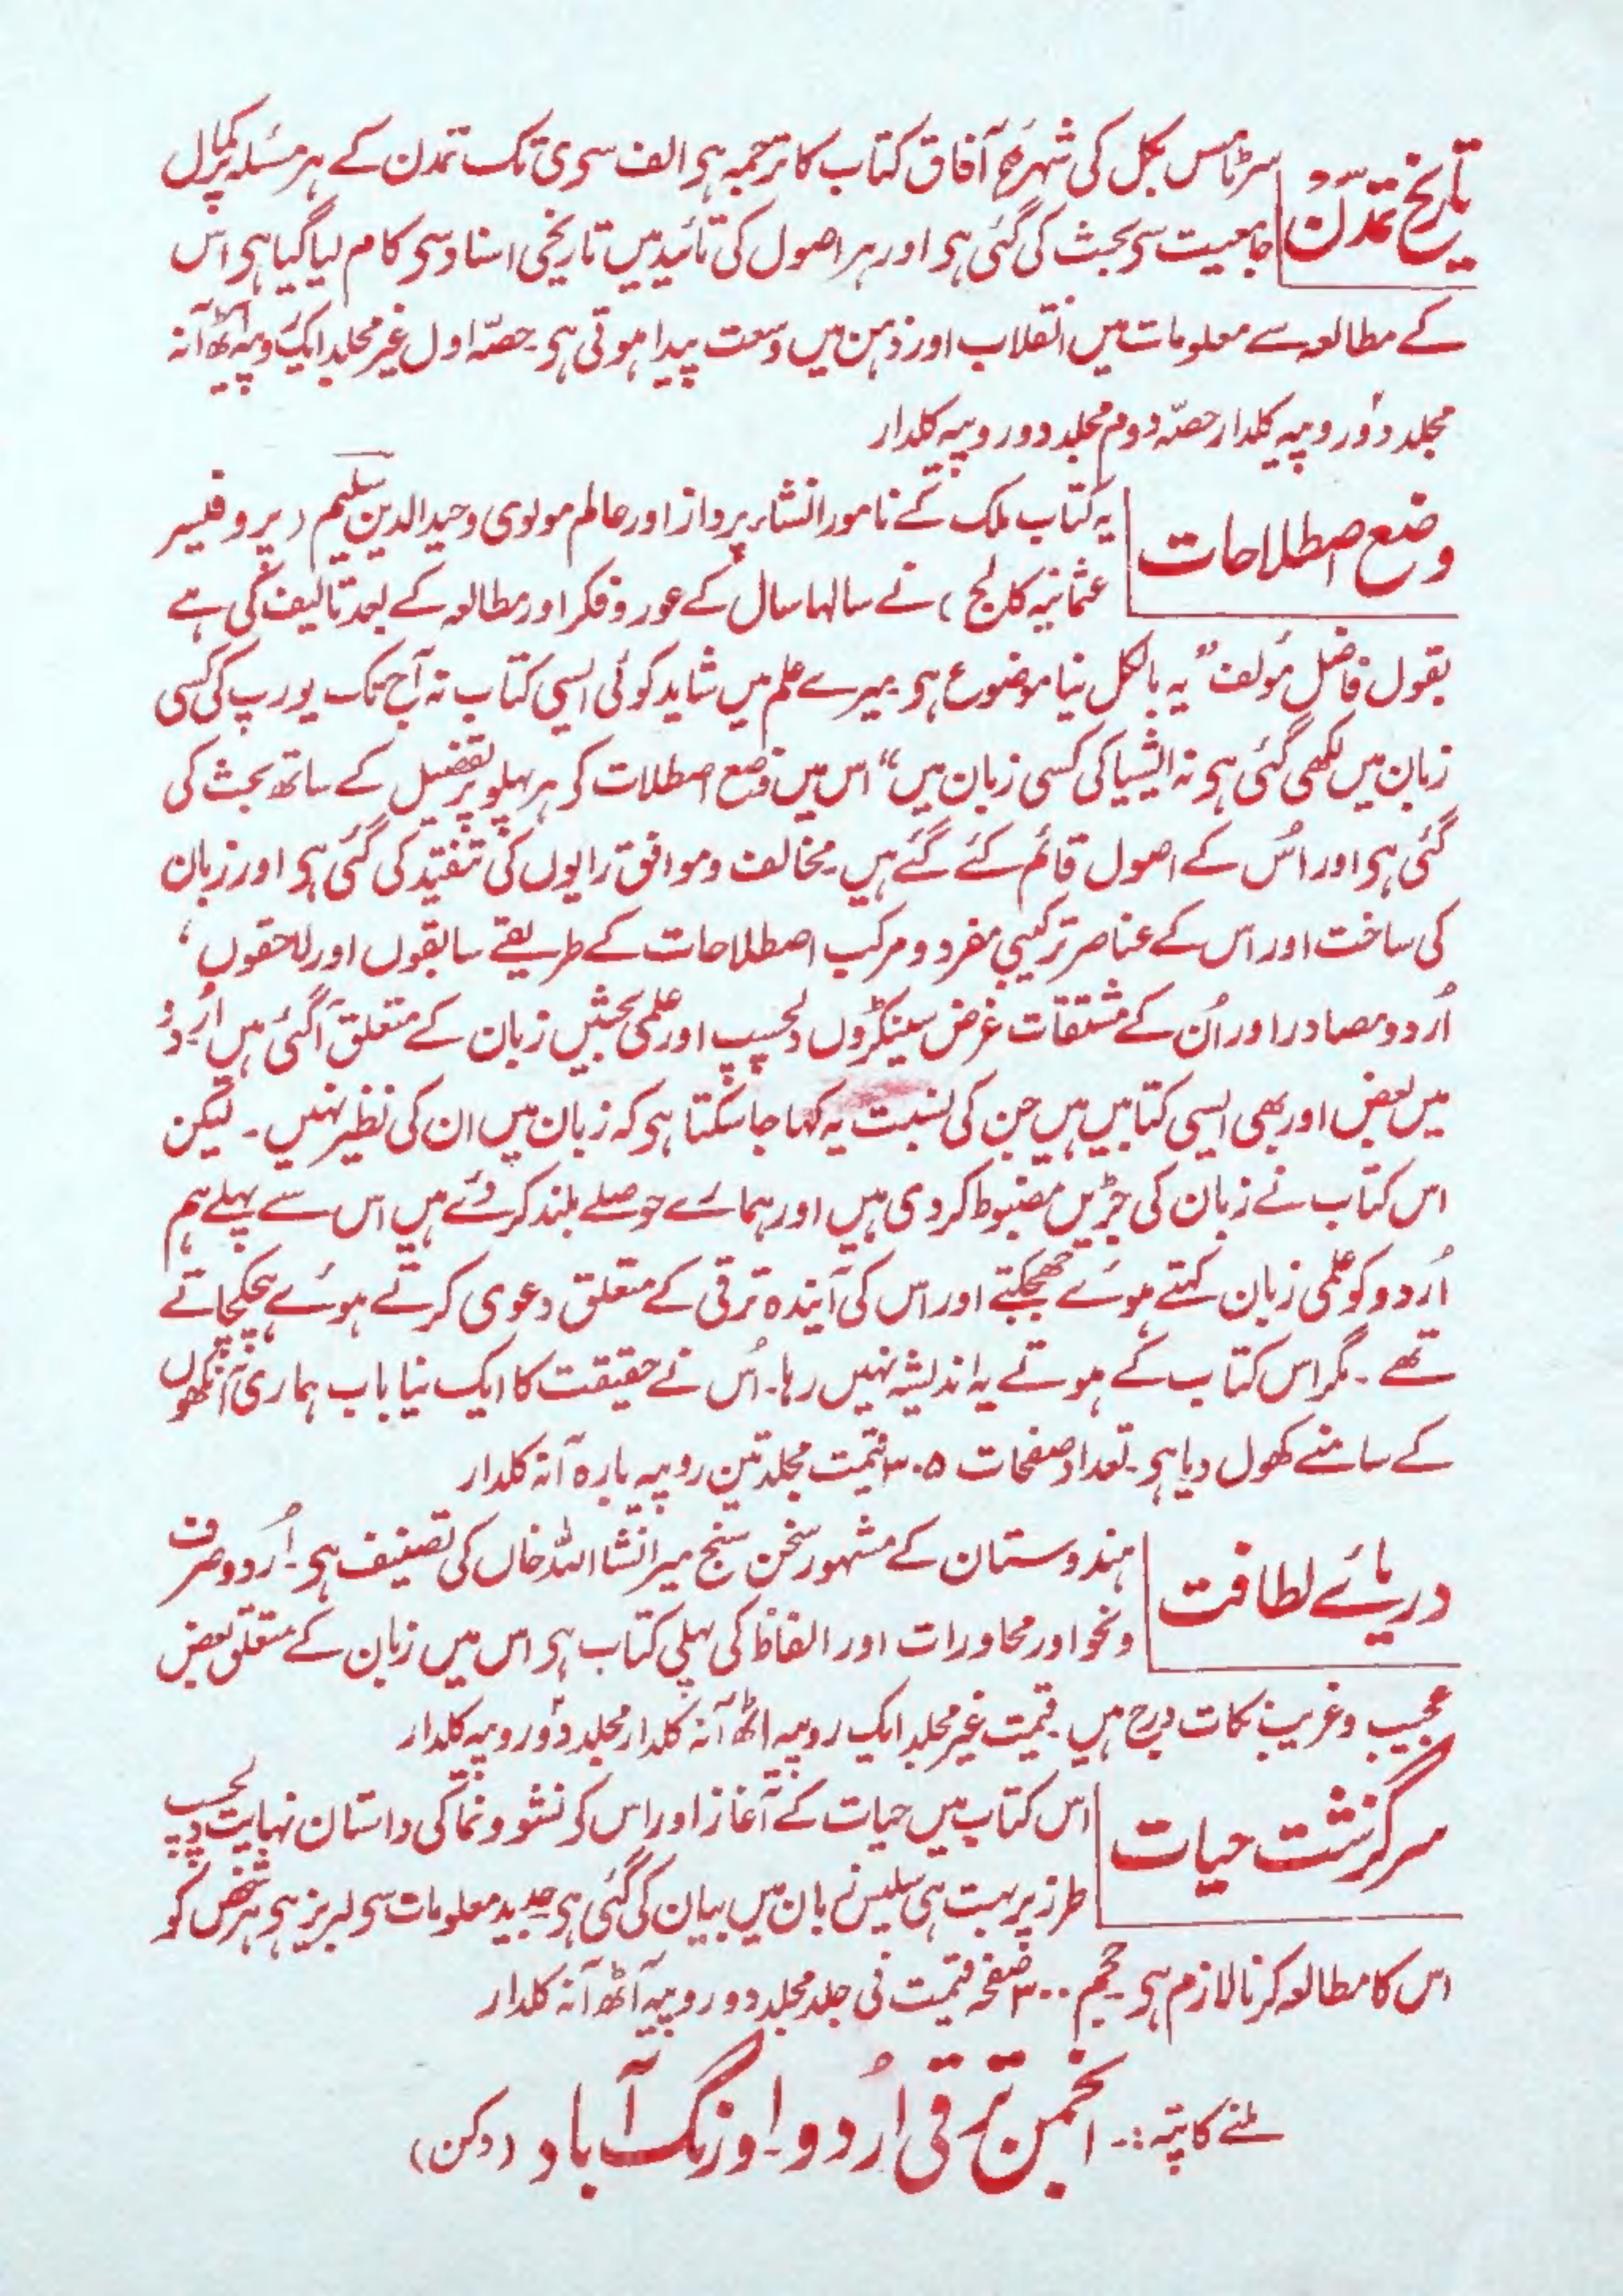 تاریخ تمدّن
سرٹامس بکل کی شہرۂ آفاق کتاب کا ترجمہ ہی الف سی ی تک تمدن کے ہر مسئلہ پر کمال
جامعیت سی بحث کی گئی ہی اور ہر اصول کی تائید میں تاریخی اسناد سی کام لیا گیا ہی اس
کے مطالعہ سے معلومات میں انقلاب اور ذہن میں وسعت پیدا ہوتی ہی۔ حصّہ اول غیر مجلد ایک روپیہ آٹھ آنہ
مجلد دو روپیہ کلدار حصّہ دوم مجلد دو روپیہ کلدار
وضع اصطلاحات
یہ کتاب ملک کے نامور انشاء پرداز اور عالم مولوی وحید الدین سلیم (پروفیسر
عثمانیہ کالج) نے سالہا سال کے غور و فکر اور مطالعہ کے بعد تالیف کی ہے
بقول فاضل مؤلف ”یہ بالکل نیا موضوع ہی۔ میرے علم میں شاید کوئی ایسی کتاب نہ آج تک یورپ کی کسی
زبان میں لکھی گئی ہی نہ ایشیا کی کسی زبان میں“ اس میں وضع اصطلات کر ہر پہلو پر تفصیل کے ساتھ بحث کی
گئی ہی اور اُس کے اصول قائم کئے گئے ہیں۔ مخالف و موافق رایوں کی تنقید کی گئی ہی اور زبان
کی ساخت اور اس کے عناصر ترکیبی مفرد و مرکب اصطلاحات کے طریقے سابقوں اور لاحقوں،
اُردو مصادر اور اُن کے مشتقات غرض سینکڑوں دلچسپ اور علمی بحثیں زبان کے متعلق آگئی ہیں اُردو
میں بعض اور بھی ایسی کتابیں ہیں جن کی نسبت یہ کہا جا سکتا ہی کہ زبان میں ان کی نظیر نہیں۔ لیکن
اس کتاب نے زبان کی جڑیں مضبوط کر دی ہیں اور ہمارے حوصلے بلند کر دئے ہیں اس سے پہلے ہم
اُردو کو علمی زبان کہتے ہوئے جھجکتے اور اس کی آیندہ ترقی کے متعلق دعوی کرتے ہوئے ہچکچاتے
تھے۔ مگر اس کتاب کے ہوتے یہ اندیشہ نہیں رہا۔ اُس نے حقیقت کا ایک نیا باب ہماری آنکھوں
کے سامنے کھول دیا ہی۔ تعداد صفحات ۳۰۵ قیمت مجلد تین روپیہ بارہ آنہ کلدار
دریائے لطافت
ہندوستان کے مشہور سخن سنج میر انشا اللہ خاں کی تصنیف ہی۔ اُردو صرف
و نحو اور محاورات اور الفاظ کی پہلی کتاب ہی اس میں زبان کے متعلق بعض
عجیب و غریب نکات درج ہیں۔ قیمت غیر مجلد ایک روپیہ اٹھ آنہ کلدار مجلد دو روپیہ کلدار
سرگزشت حیات
اس کتاب میں حیات کے آغاز اور اس کر نشو و نما کی داستان نہایت دلچسپ
طرز پر بہت ہی سلیس زبان میں بیان کی گئی ہی جدید معلومات سی لبریز ہی ہر شخص کو
اس کا مطالعہ کرنا لازم ہی حجم ۳۰۰ صفحہ قیمت فی جلد مجلد دو روپیہ آٹھ آنہ کلدار
ملنے کا پتہ:۔ انجمن ترقی اُردو۔ اورنگ آباد (دکن)